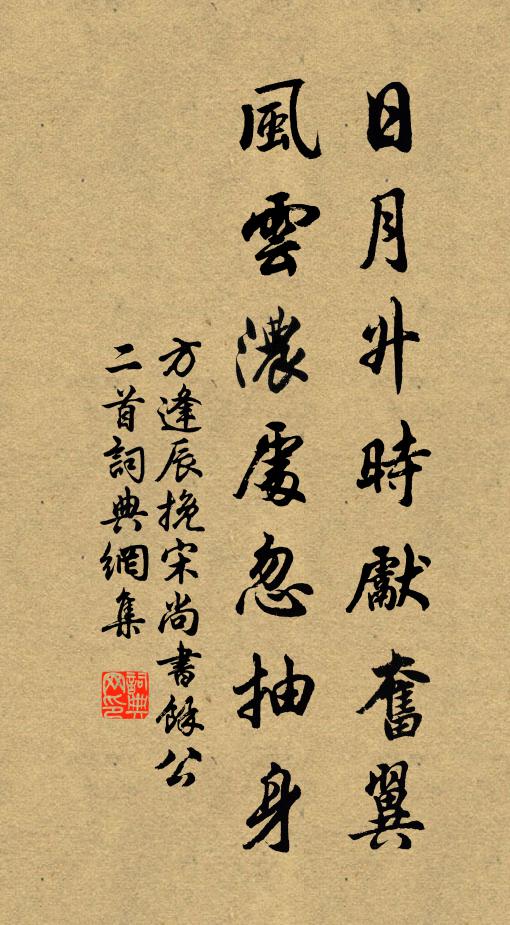 日月升時獻奮翼
風雲濃處忽抽身
方逢辰挽宋尚書餘公
二首詞典網集
詞典網印